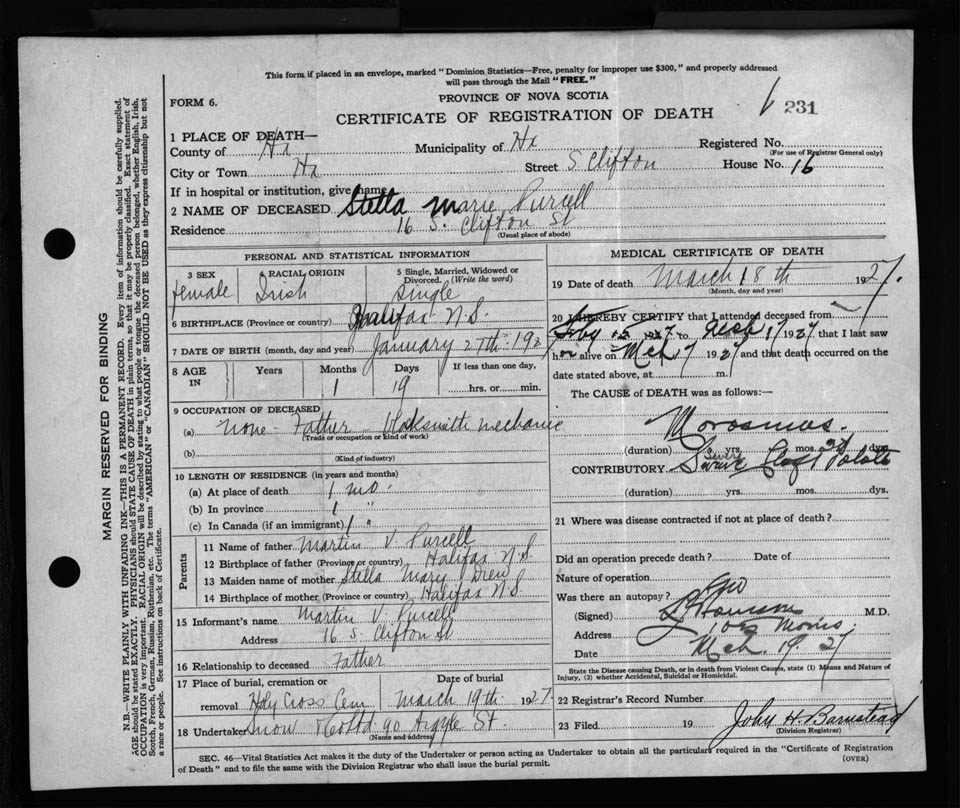 This form if placed in an envelope, marked "Dominion Statistics—Free, penalty for improper use $300," and properly addressed
will pass through the Mail "FREE."
FORM 6.
PROVINCE OF NOVA SCOTIA
231
CERTIFICATE OF REGISTRATION OF DEATH
1 PLACE OF DEATH—
County of Hx Municipality of Hx Registered No.
(For use of Registrar General only)
City or Town Hx Street S. Clifton House No. 16
If in hospital or institution, give name
2 NAME OF DECEASED Stella Marie Purcell
Residence 16 S. Clifton St
(Usual place of abode)
PERSONAL AND STATISTICAL INFORMATION
3 SEX 4 RACIAL ORIGIN 5 Single, Married, Widowed or
Divorced. (Write the word)
female Irish Single
6 BIRTHPLACE (Province or country) Halifax N.S.
7 DATE OF BIRTH (month, day and year) January 27th 1927
8 AGE IN Years Months Days If less than one day,
1 19 hrs. or min.
9 OCCUPATION OF DECEASED
(a) none - Father Blaksmith mechanic
(Trade or occupation or kind of work)
(b)
(Kind of industry)
10 LENGTH OF RESIDENCE (in years and months)
(a) At place of death 1 mo.
(b) In province 1 "
(c) In Canada (if an immigrant) 1 "
Parents
11 Name of father Martin V. Purcell
12 Birthplace of father (Province or country) Halifax N.S.
13 Maiden name of mother Stella Mary Drew
14 Birthplace of mother (Province or country) Halifax N.S.
15 Informant's name Martin V. Purcell
Address 16 S. Clifton St
16 Relationship to deceased Father
17 Place of burial, cremation or Date of burial
removal Holy Cross Cem March 19th 1927.
18 Undertaker Snow & Co Ltd 90 Argyle St.
(Name and address)
MEDICAL CERTIFICATE OF DEATH
19 Date of death March 18th 1927.
(Month, day and year)
20 I HEREBY CERTIFY that I attended deceased from
1927 to Mch 17 1927 that I last saw
h er alive on Mch 17 1927 and that death occurred on the
date stated above, at m.
The CAUSE OF DEATH was as follows:—
Morasmus.
(duration) yrs. mos. dys.
CONTRIBUTORY Severe Cleft Palate
(duration) yrs. mos. dys.
21 Where was disease contracted if not at place of death?
Did an operation precede death? Date of
Nature of operation
Was there an autopsy? no
(Signed) M.D.
Address Morris.
Date Mch. 19. 27
State the Disease causing Death, or in death from Violent Causes, state (1) Means and Nature of
Injury, (2) whether Accidental, Suicidal or Homicidal.
22 Registrar's Record Number
23 Filed 19 John H. Barnstead
(Division Registrar)
SEC. 46—Vital Statistics Act makes it the duty of the Undertaker or person acting as Undertaker to obtain all the particulars required in the "Certificate of Registration
of Death" and to file the same with the Division Registrar who shall issue the burial permit.
(OVER)
MARGIN RESERVED FOR BINDING
N.B.—WRITE PLAINLY WITH UNFADING INK—THIS IS A PERMANENT RECORD. Every item of information should be carefully supplied.
AGE should be stated EXACTLY. PHYSICIANS should STATE CAUSE OF DEATH in plain terms, so that it may be properly classified. Exact statement of
OCCUPATION is very important. RACIAL ORIGIN will be described by stating to what people or tongue the deceased person belonged, whether English, Irish,
Scotch, French, German, Russian, Ruthenian, etc. The terms "AMERICAN" or "CANADIAN" SHOULD NOT BE USED as they express citizenship but not
a race or people. See instructions on back of Certificate.